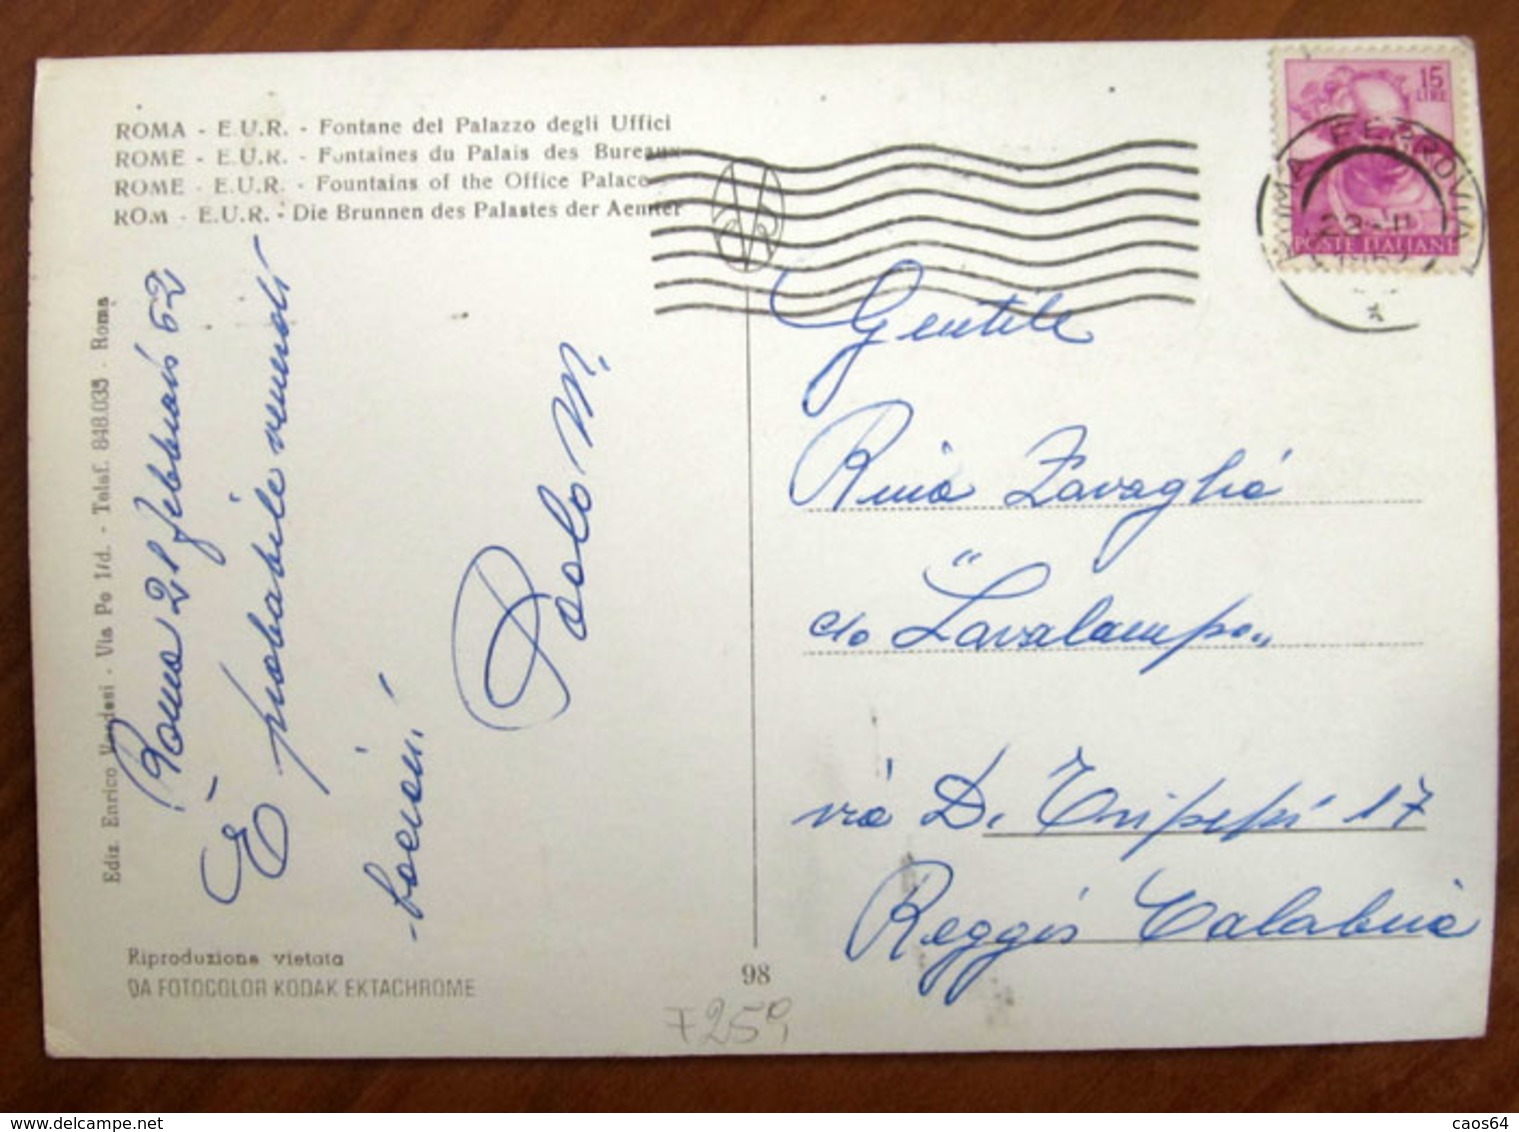 ROMA - E.U.R. - Fontane del Palazzo degli Uffici
ROME - E.U.R. - Fontaines du Palais des Bureaux
ROME - E.U.R. - Fountains of the Office Palace
ROM - E.U.R. - Die Brunnen des Palastes der Aemter
Ediz. Enrico Verdesi - Via Po 1/d. - Telef. 848.035 - Roma
Roma 21 febbraio 62
È probabile
bacioni!
Paolo M.
Riproduzione vietata
DA FOTOCOLOR KODAK EKTACHROME
98
F25
15
LIRE
POSTE ITALIANE
ROMA FERROVIA
Gentile
Rina Zavaglia
c/o "Lavalampo"
via D. Tripepi 17
Reggio Calabria
delcampe.net
caos64